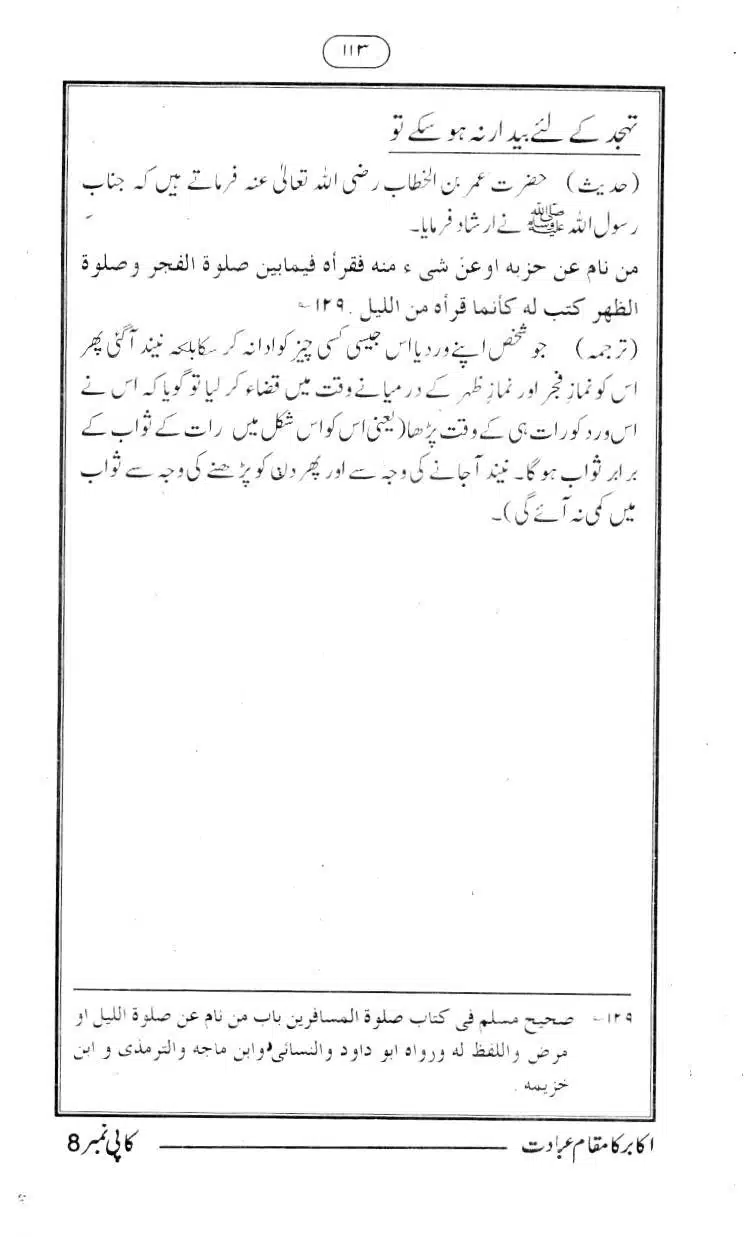 ۱۱۳
تہجد کے لئے بیدار نہ ہو سکے تو
(حدیث) حضرت عمر بن الخطاب رضی اللہ تعالیٰ عنہ فرماتے ہیں کہ جناب
رسول اللہ ﷺ نے ارشاد فرمایا۔
من نام عن حزبه او عن شیء منه فقرأه فيمابين صلوة الفجر و صلوة
الظهر كتب له كأنما قرأه من الليل . ۱۲۹؎
(ترجمہ) جو شخص اپنے ورد یا اس جیسی کسی چیز کو ادا نہ کر سکا بلکہ نیند آ گئی پھر
اس کو نماز فجر اور نماز ظہر کے درمیانے وقت میں قضاء کر لیا تو گویا کہ اس نے
اس ورد کو رات ہی کے وقت پڑھا (یعنی اس کو اس شکل میں رات کے ثواب کے
برابر ثواب ہو گا۔ نیند آ جانے کی وجہ سے اور پھر دن کو پڑھنے کی وجہ سے ثواب
میں کمی نہ آئے گی)۔
۱۲۹؎ صحيح مسلم فی كتاب صلوة المسافرين باب من نام عن صلوة الليل او
مرض واللفظ له ورواه ابو داود والنسائی وابن ماجه والترمذی و ابن
خزيمه .
اکابر کا مقام عبادت کاپی نمبر 8